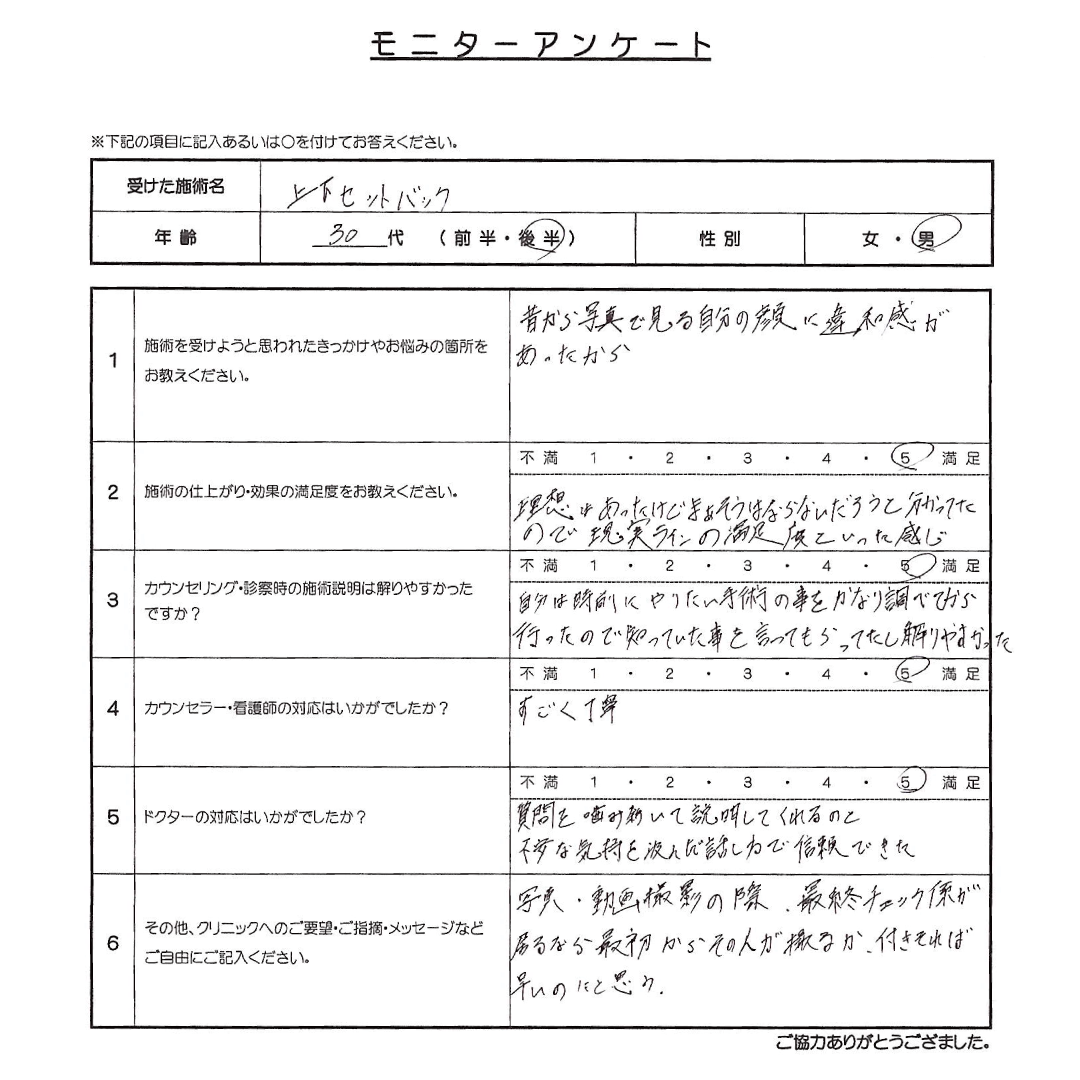 モニターアンケート
※下記の項目に記入あるいは○を付けてお答えください。
受けた施術名 上下セットバック
年齢 30代 (前半・後半) 性別 女・男
1 施術を受けようと思われたきっかけやお悩みの箇所をお教えください。
昔から写真で見る自分の顔に違和感が
あったから
2 施術の仕上がり・効果の満足度をお教えください。
不満 1 ・ 2 ・ 3 ・ 4 ・ 5 満足
理想はあったけどまぁそうはならないだろうと分かってた
ので現実ラインの満足度といった感じ
3 カウンセリング・診察時の施術説明は解りやすかった
ですか？
不満 1 ・ 2 ・ 3 ・ 4 ・ 5 満足
自分は時前にやりたい手術の事をかなり調べてから
行ったので知っていた事を言ってもらってたし解りやすかった
4 カウンセラー・看護師の対応はいかがでしたか？
不満 1 ・ 2 ・ 3 ・ 4 ・ 5 満足
すごく丁寧
5 ドクターの対応はいかがでしたか？
不満 1 ・ 2 ・ 3 ・ 4 ・ 5 満足
質問を噛み砕いて説明してくれるのと
不安な気持を汲んだ話し方で信頼できた
6 その他、クリニックへのご要望・ご指摘・メッセージなど
ご自由にご記入ください。
写真・動画撮影の際、最終チェック係が
居るなら最初からその人が撮るか、付きそれば
早いのにと思う.
ご協力ありがとうござました。